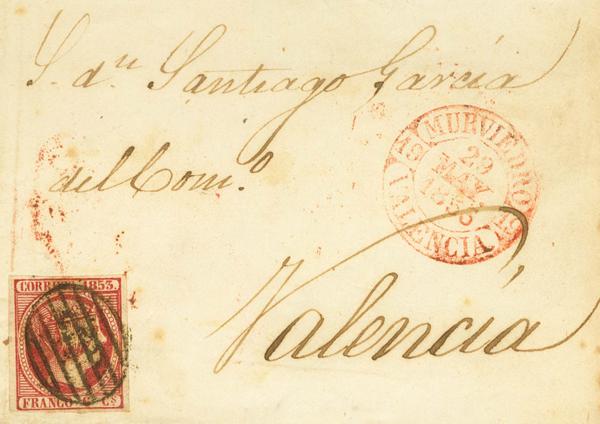 S. dn Santiago García
del Com.o
Valencia
MURVIEDRO
29
MAY
VALENCIA
CORREOS 1853.
FRANCO 6 Cs